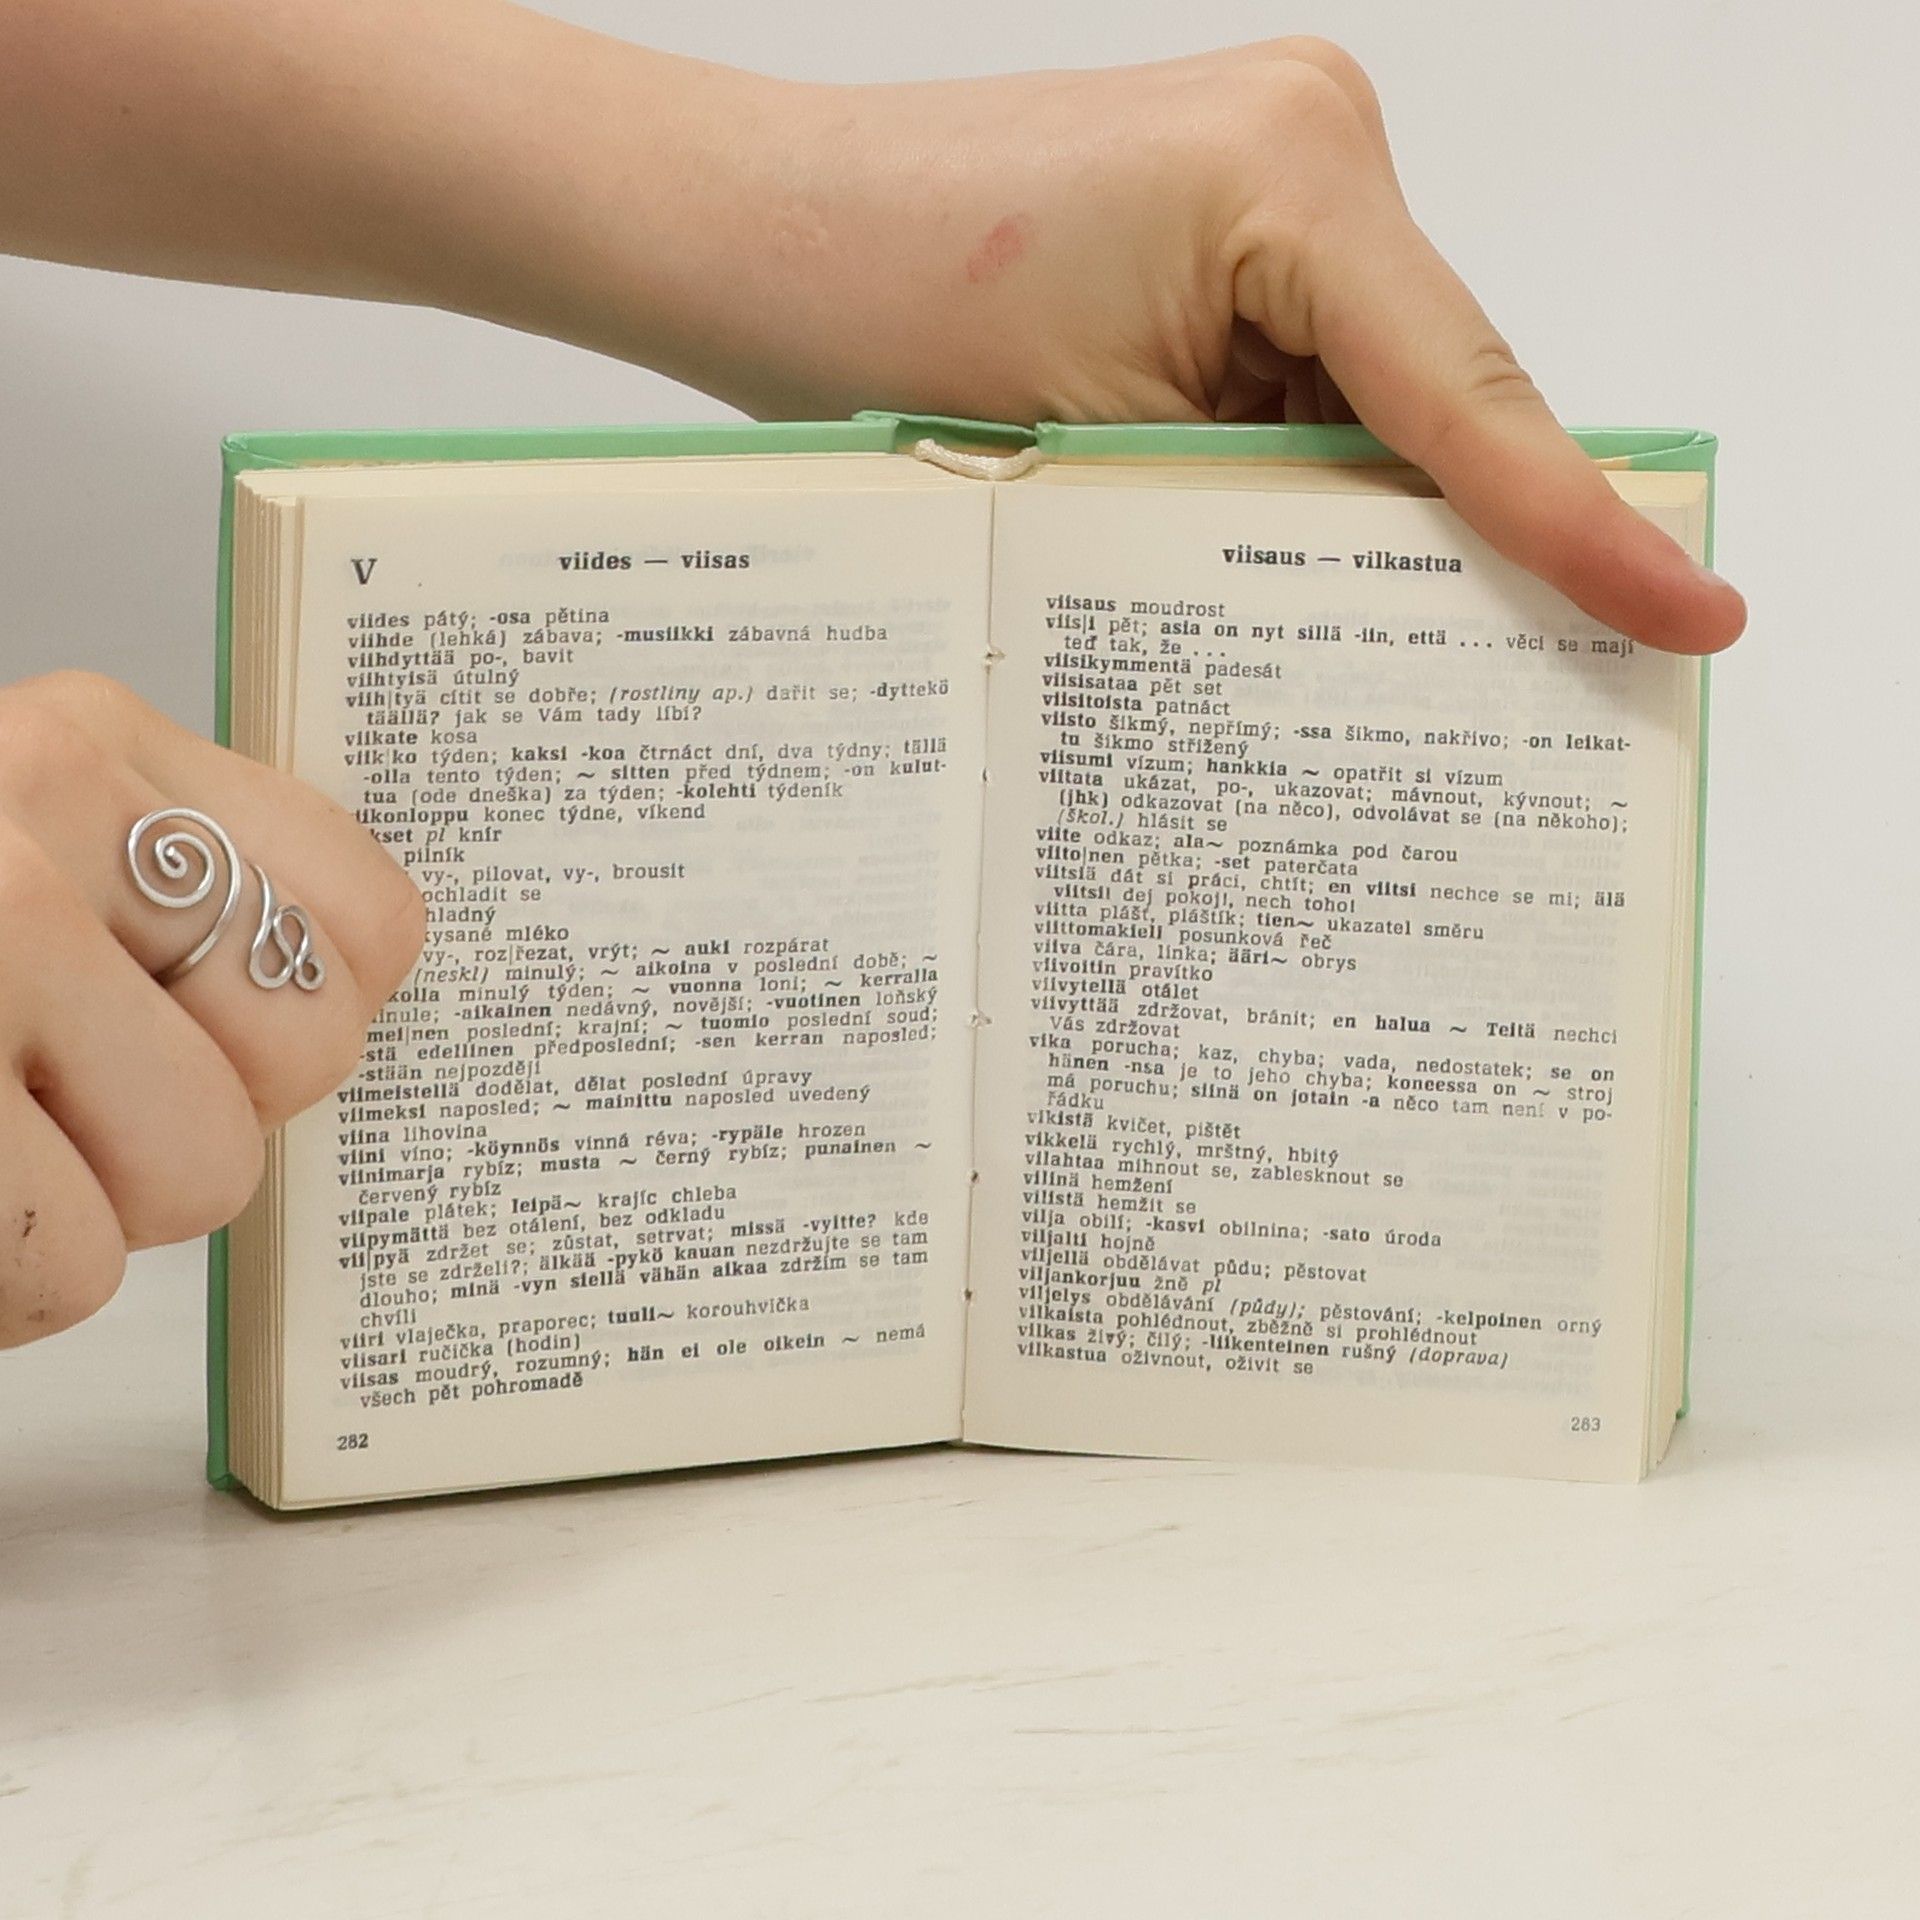 V
viides — viisas
viides pátý; -osa pětina
viihde (lehká) zábava; -musiikki zábavná hudba
viihdyttää po-, bavit
viihtyisä útulný
viih|tyä cítit se dobře; (rostliny ap.) dařit se; -dyttekö
täällä? jak se Vám tady líbí?
viikate kosa
viik|ko týden; kaksi -koa čtrnáct dní, dva týdny; tällä
-olla tento týden; ~ sitten před týdnem; -on kulut-
tua (ode dneška) za týden; -kolehti týdeník
iikonloppu konec týdne, víkend
kset pl knír
pilník
vy-, pilovat, vy-, brousit
ochladit se
hladný
kysané mléko
vy-, roz|řezat, vrýt; ~ auki rozpárat
(neskl) minulý; ~ aikoina v poslední době; ~
kolla minulý týden; ~ vuonna loni; ~ kerralla
inule; -aikainen nedávný, novější; -vuotinen loňský
mei|nen poslední; krajní; ~ tuomio poslední soud;
-stä edellinen předposlední; -sen kerran naposled;
-stään nejpozději
viimeistellä dodělat, dělat poslední úpravy
viimeksi naposled; ~ mainittu naposled uvedený
viina lihovina
viini víno; -köynnös vinná réva; -rypäle hrozen
viinimarja rybíz; musta ~ černý rybíz; punainen ~
červený rybíz
viipale plátek; leipä~ krajíc chleba
viipymättä bez otálení, bez odkladu
vii|pyä zdržet se; zůstat, setrvat; missä -vyitte? kde
jste se zdrželi?; älkää -pykö kauan nezdržujte se tam
dlouho; minä -vyn siellä vähän aikaa zdržím se tam
chvíli
viiri vlaječka, praporec; tuuli~ korouhvička
viisari ručička (hodin)
viisas moudrý, rozumný; hän ei ole oikein ~ nemá
všech pět pohromadě
282
viisaus — vilkastua
viisaus moudrost
viis|i pět; asia on nyt sillä -iin, että ... věci se mají
teď tak, že ...
viisikymmentä padesát
viisisataa pět set
viisitoista patnáct
viisto šikmý, nepřímý; -ssa šikmo, nakřivo; -on leikat-
tu šikmo střižený
viisumi vízum; hankkia ~ opatřit si vízum
viitata ukázat, po-, ukazovat; mávnout, kývnout; ~
(jhk) odkazovat (na něco), odvolávat se (na někoho);
(škol.) hlásit se
viite odkaz; ala~ poznámka pod čarou
viito|nen pětka; -set paterčata
viitsiä dát si práci, chtít; en viitsi nechce se mi; älä
viitsi! dej pokoj!, nech toho!
viitta plášť, pláštík; tien~ ukazatel směru
viittomakieli posunková řeč
viiva čára, linka; ääri~ obrys
viivoitin pravítko
viivytellä otálet
viivyttää zdržovat, bránit; en halua ~ Teitä nechci
Vás zdržovat
vika porucha; kaz, chyba; vada, nedostatek; se on
hänen -nsa je to jeho chyba; koneessa on ~ stroj
má poruchu; siinä on jotain -a něco tam není v po-
řádku
vikistä kvičet, pištět
vikkelä rychlý, mrštný, hbitý
vilahtaa mihnout se, zablesknout se
vilinä hemžení
vilistä hemžit se
vilja obilí; -kasvi obilnina; -sato úroda
viljalti hojně
viljellä obdělávat půdu; pěstovat
viljankorjuu žně pl
viljelys obdělávání (půdy); pěstování; -kelpoinen orný
vilkaista pohlédnout, zběžně si prohlédnout
vilkas živý; čilý; -liikenteinen rušný (doprava)
vilkastua oživnout, oživit se
283